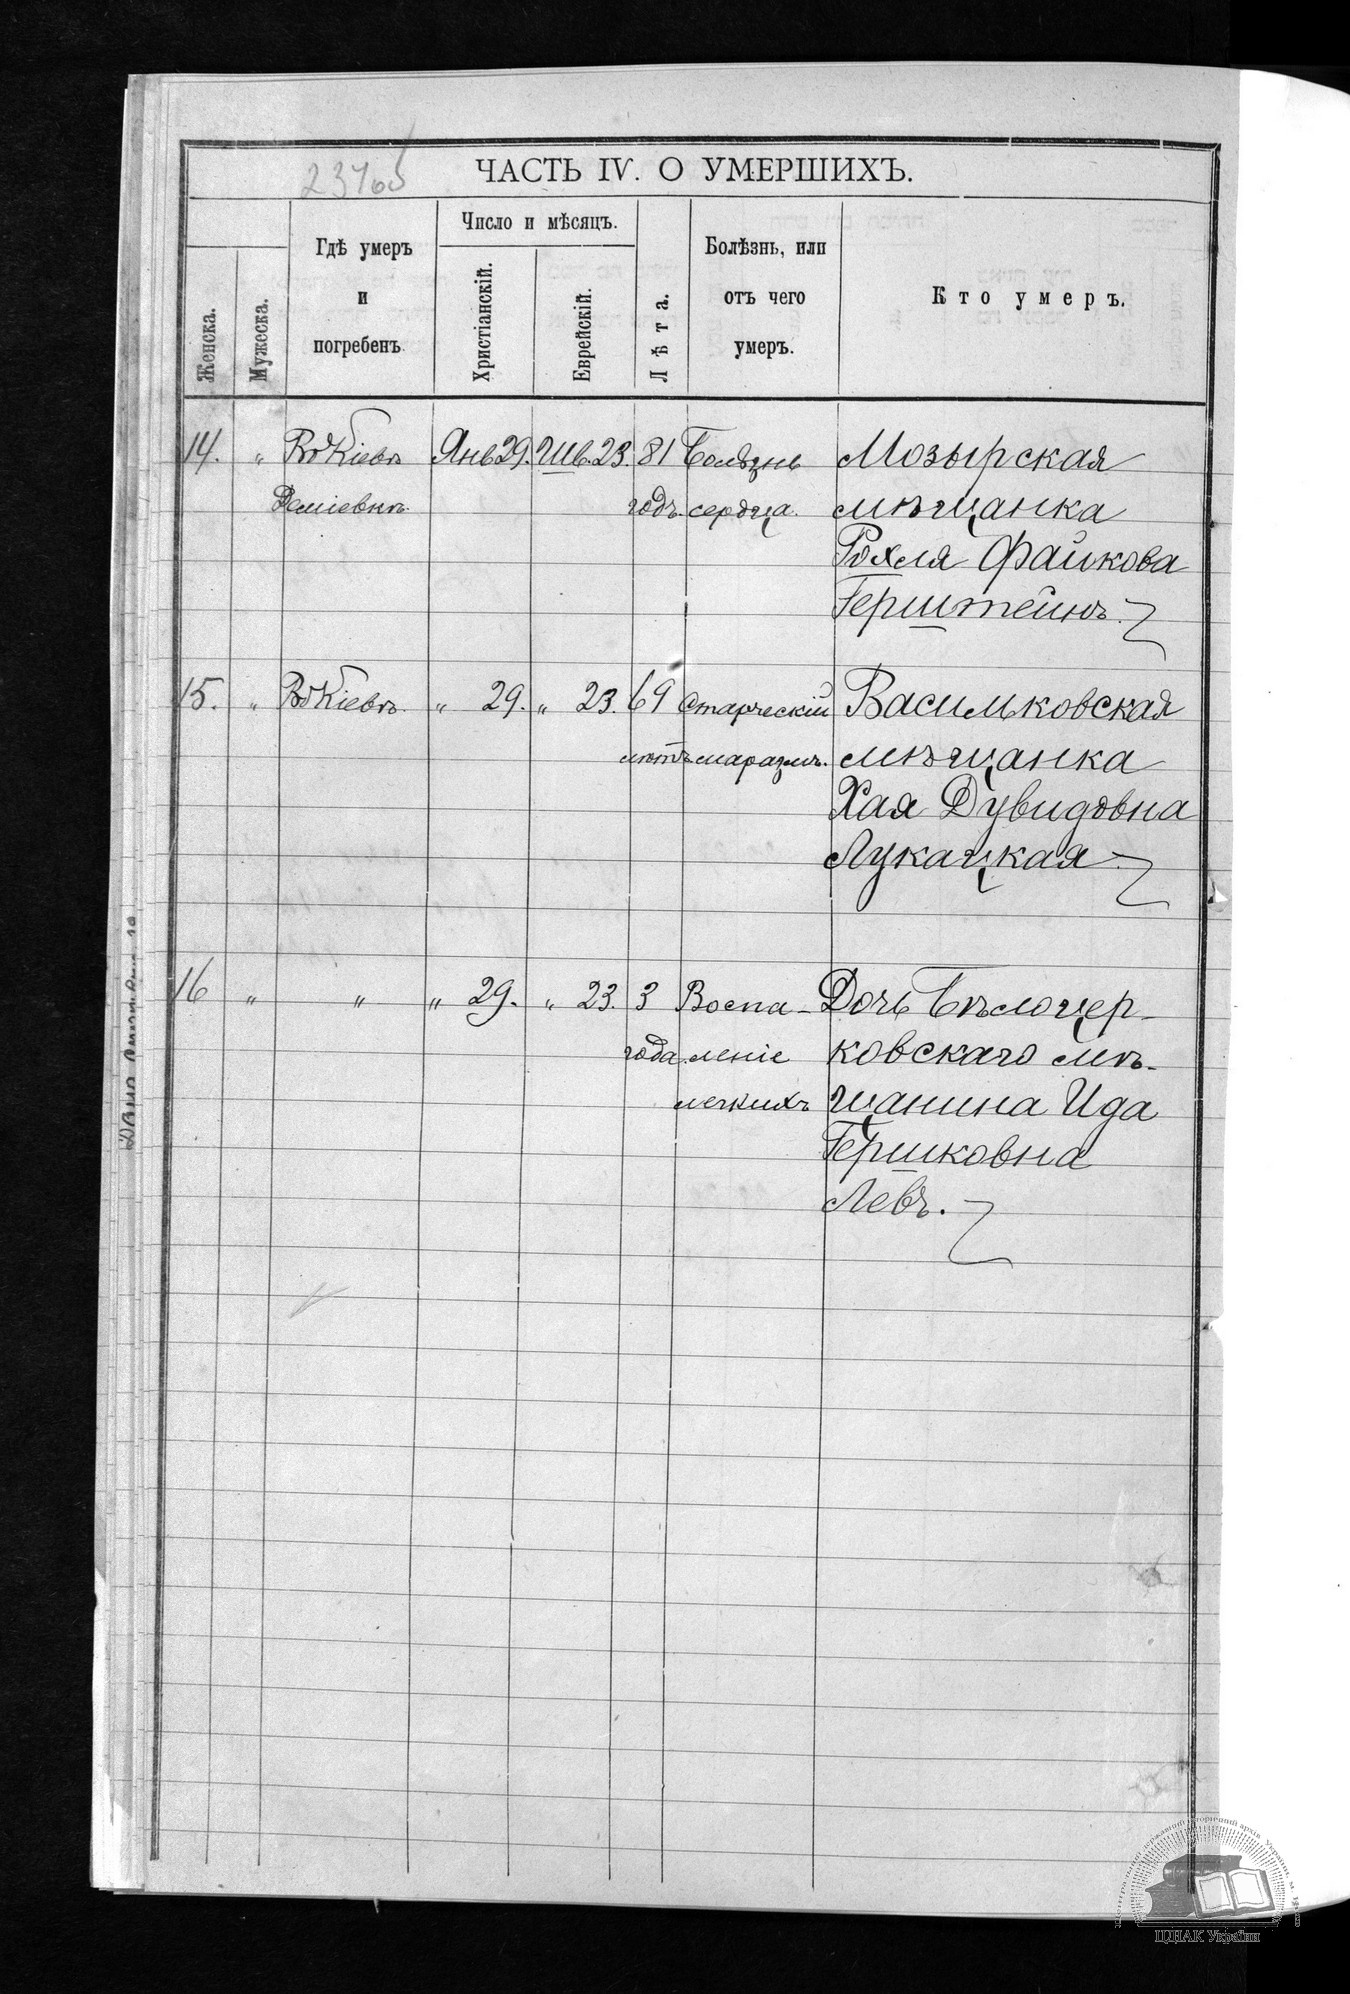 ЧАСТЬ IV. О УМЕРШИХЪ.
Женска.
Мужеска.
Гдѣ умеръ
и
погребенъ
Число и мѣсяцъ.
Христіанскій.
Еврейскій.
Лѣта.
Болѣзнь, или
отъ чего
умеръ.
Кто умеръ.
14. „ Въ Кіевѣ Янв 29. Шв. 23. 81 Болѣзнь Мозырская
Деміевкѣ годъ. сердца. мѣщанка
Рохля Файкова
Герштейнъ.
15. „ Въ Кіевѣ „ 29. „ 23. 69 Старческій Васильковская
лѣтъ маразмъ. мѣщанка
Хая Дувидовна
Лукацкая
16 „ „ „ 29. „ 23. 3 Воспа- Дочь Бѣлоцер-
года леніе ковскаго мѣ-
легкихъ щанина Ида
Гершковна
Левъ.
ЦДІАК України